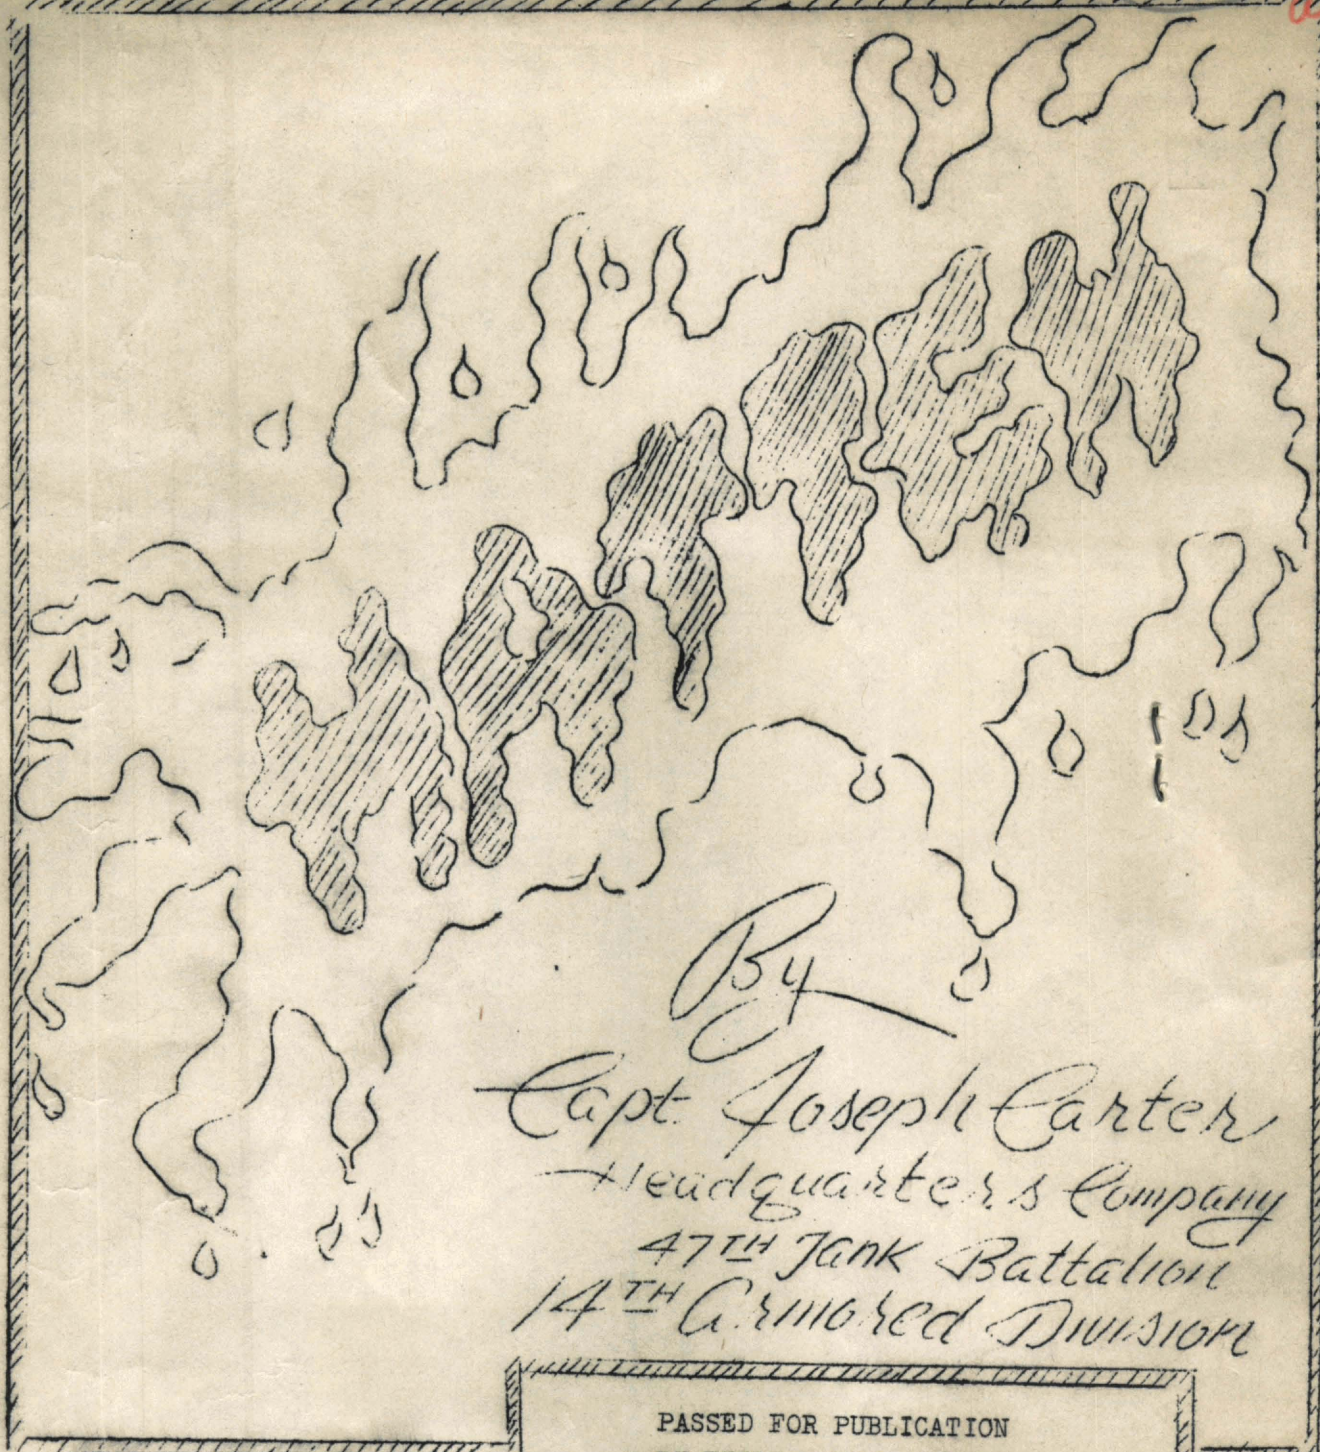 HATTEN
By
Capt. Joseph Carter
Headquarters Company
47TH Tank Battalion
14TH Armored Division
PASSED FOR PUBLICATION